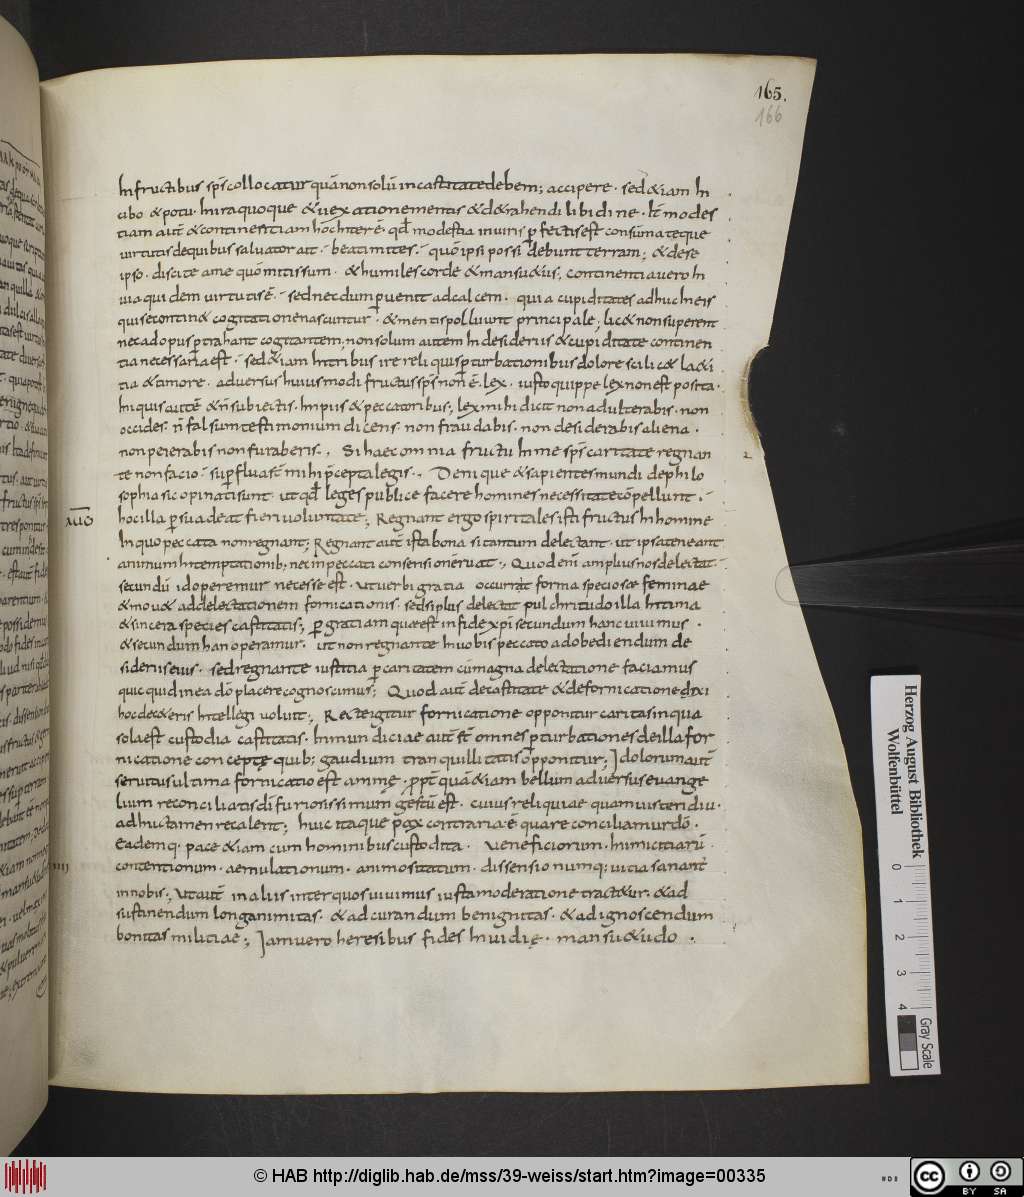 165.
166
In fructibus sp̄s collocatur quā non solū in castitate debem; accipere · sed &iam In
cibo · & potu · In ira quoque & uexatione mentis & d&rahendi libidine · It modes
tiam aut̄ & continentiam hoc Interē · qđ modestia in uiris perfectis est consūmateque
uirtutis de quibus saluator ait · beati mites · quōm ipsi possidebunt terram; & de se
ipso · discite a me quōm mitis sum · & humiles corde & mansu&us; continentia uero In
uia quidem uirtutis ē · sed necdum peruenit ad calcem · quia cupiditates adhuc In eis
qui se contin& cogitatione nascuntur · & mentis polluunt principale; lic& non superent
nec ad opus pertrahant cogitantem; non solum autem In desideriis & cupiditate continen
tia necessaria est · sed &iam In tribus ire reliquis perturbationibus dolore scilic& la&i
tia & timore · aduersus huiusmodi fructus sp̄s non ē · lex · iusto quippe lex non est posita ·
In quis autē & n̄ subiectis · Impiis & peccatoribus; lex mihi dicit non adulterabis · non
occides · n̄ falsum testimonium dicens · non fraudabis · non desiderabis aliena ·
non peierabis non furaberis · Si haec omnia fructu In me sp̄s caritate regnan
te non facio · superfluast mihi precepta legis · Denique & sapientes mundi de philo
sophia sic opinati sunt · ut qđ leges publice facere homines necessitate cōpellunt ·
AUḠ
hoc illa persuadeat fieri uoluntate; Regnant ergo spiritales isti fructus In homine
In quo peccata non regnant; Regnant aut̄ ista bona si tantum delectant · ut ipsa teneant
animum In temptationib; ne in peccati consensionē ruat; Quod enī amplius nos delectat
secundū id operemur necesse est · ut uerbi gratia occurrat forma speciosae feminae
& mou& ad delectationem fornicationis · sed si plus delectat pulchritudo illa Intima
& sincera species castitatis; per gratiam quae est in fide xp̄i secundum hanc uiuimus ·
& secundum han operamur · ut non regnante In uobis peccato ad obediendum de
sideriis eius · sed regnante iustitia per caritatem cū magna delectatione faciamus
quicquid in ea dō placere cognoscimus; Quod aut̄ de castitate & de fornicatione dixi
hoc de c&eris Intellegi uoluit; Recte igitur fornicatione opponitur caritas in qua
sola est custodia castitatis · Inmundiciae aut̄ st̄ omnes perturbationes de illa for
nicatione conceptę quib; gaudium tranquillitatis opponitur; Idolorum aut̄
seruitus ultima fornicatio est animę · propt̄ quā &iam bellum aduersus euange
lium reconciliatis dī furiosissimum gestū est · cuius reliquiae quamuis tendiu ·
adhuc tamen recalent; huic itaque pax contraria ē quare conciliamur dō ·
Eademq· pace &iam cum hominibus custodita · Ueneficiorum · Inimicitiarū ·
IIII
contentionum · aemulationum · animositatum · dissensionumq; uitia sanant̄
in nobis; ut aut̄ in aliis inter quos uiuimus iusta moderatione tract&ur · & ad
sustinendum longanimitas · & ad curandum benignitas · & ad ignoscendum
bonitas militiae; Iam uero heresibus fides Inuidię · mansu&udo ·
Herzog August Bibliothek
Wolfenbüttel
0 1 2 3 4
Gray Scale
© HAB http://diglib.hab.de/mss/39-weiss/start.htm?image=00335
cc BY SA